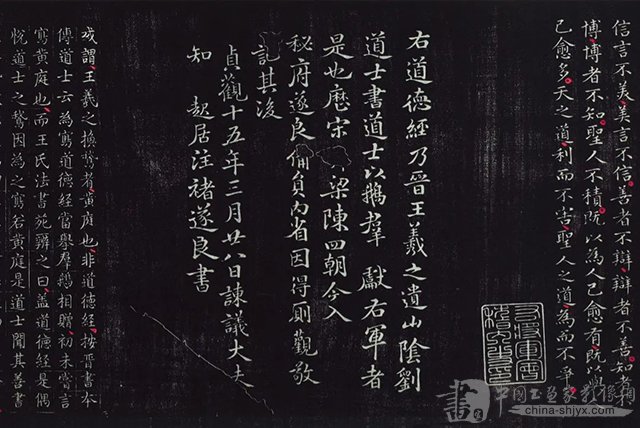 信言不美美言不信善者不辯辯者不善知者
博博者不知聖人不積既以為人已愈有既以與
已愈多天之道利而不害聖人之道為而不爭
右道德經乃晉王羲之遺山陰劉
道士書道士以鵝羣獻右軍者
是也歷宋 梁陳四朝今入
秘府遂良備員內省因得厠觀敬
記其後
貞觀十五年三月廿八日諫議大夫
知 起居注褚遂良書
或謂王羲之換鵞者黃庭也非道德經按晉書本
傳道士云為寫道德經當舉羣鵝相贈初未嘗言
寫黃庭也而王氏法書苑辯之曰蓋道德經是偶
悅道士之鵞因為之寫若黃庭是道士聞其善書
書
china-shjyx.com